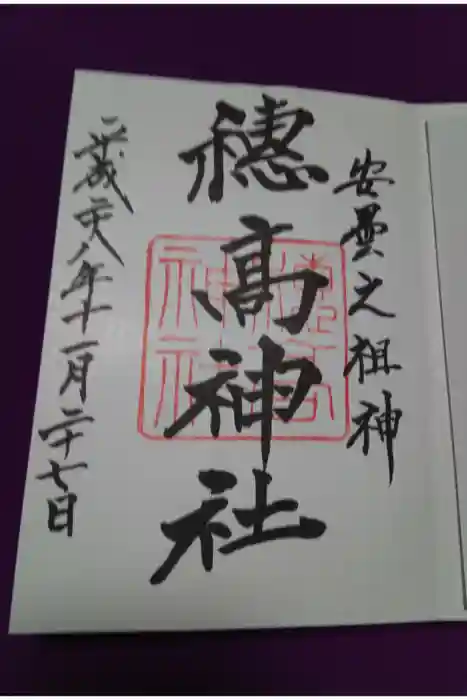 安曇之祖神
穗高神社
平成二十八年十一月二十七日
穗高
神社